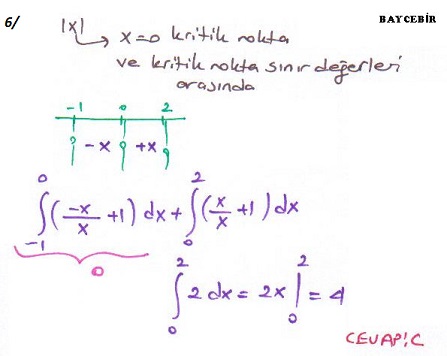 6/ BAYCEBİR
|x| → x=0 kritik nokta
ve kritik nokta sınır değerleri
arasında
-1 0 2
-x +x
∫_{-1}^{0} (-x/x +1) dx + ∫_{0}^{2} (x/x +1) dx
0
∫_{0}^{2} 2 dx = 2x |_{0}^{2} = 4
CEVAP:C